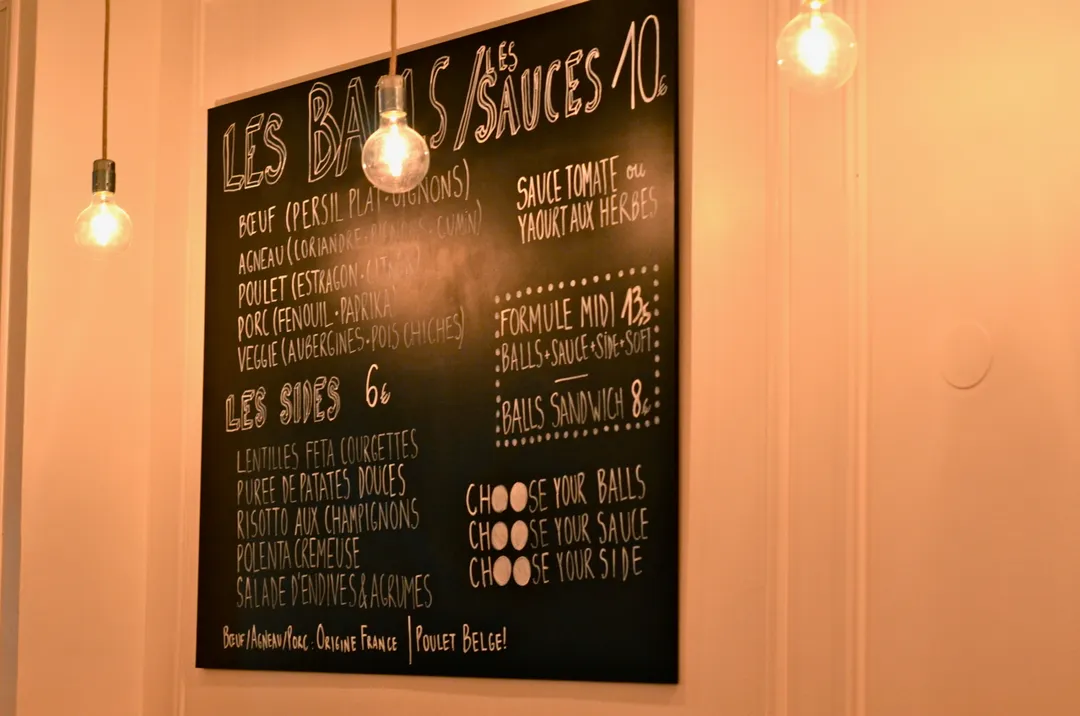 LES BALLS / LES SAUCES 10€
BŒUF (PERSIL PLAT · OIGNONS)
AGNEAU (CORIANDRE · · CUMIN)
POULET (ESTRAGON · CITRON)
PORC (FENOUIL · PAPRIKA)
VEGGIE (AUBERGINES · POIS CHICHES)
LES SIDES 6€
LENTILLES FETA COURGETTES
PUREE DE PATATES DOUCES
RISOTTO AUX CHAMPIGNONS
POLENTA CREMEUSE
SALADE D'ENDIVES & AGRUMES
SAUCE TOMATE ou
YAOURT AUX HERBES
FORMULE MIDI 13,5
BALLS + SAUCE + SIDE + SOFT
BALLS SANDWICH 8€
CHOOSE YOUR BALLS
CHOOSE YOUR SAUCE
CHOOSE YOUR SIDE
BŒUF/AGNEAU/PORC : ORIGINE FRANCE | POULET BELGE!